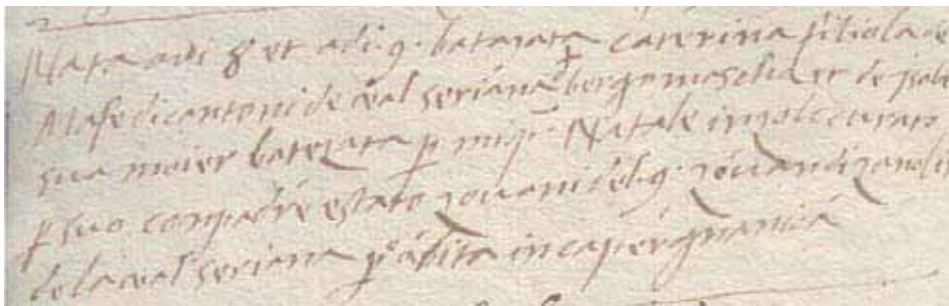 Nata adi 8 et adi 9. batezata caterina filiola de
Mafe di antoni de val seriana bergomascha et de isabe
sua moier batezata p mi p. Natale curato
p suo compadre estato zovani del q. zovan di zanoli
de la val seriana p abita in capergnanica